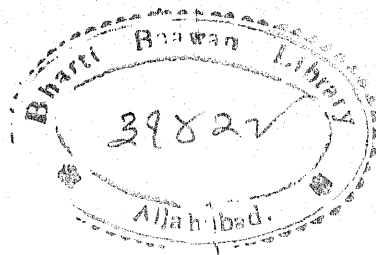 Bharti Bhawan Library
Allahabad.